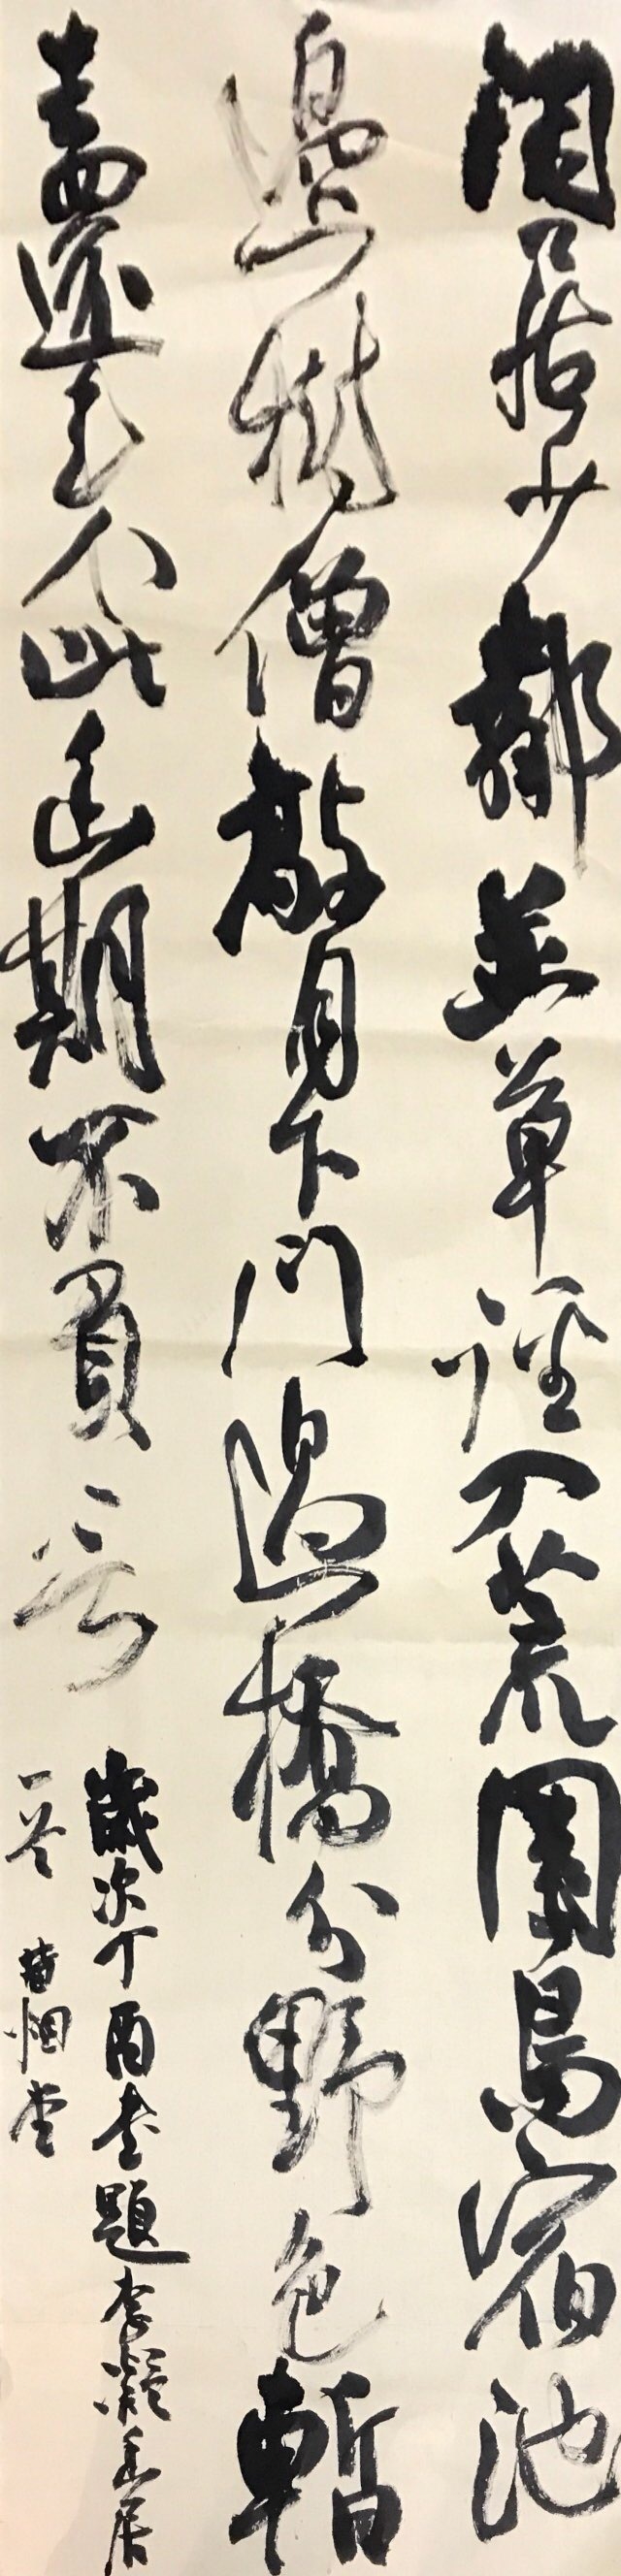 閑居少鄰並草徑入荒園鳥宿池
邊樹僧敲月下門過橋分野色暫
去還來此幽期不負言
歲次丁酉書題李凝幽居
一 烟堂